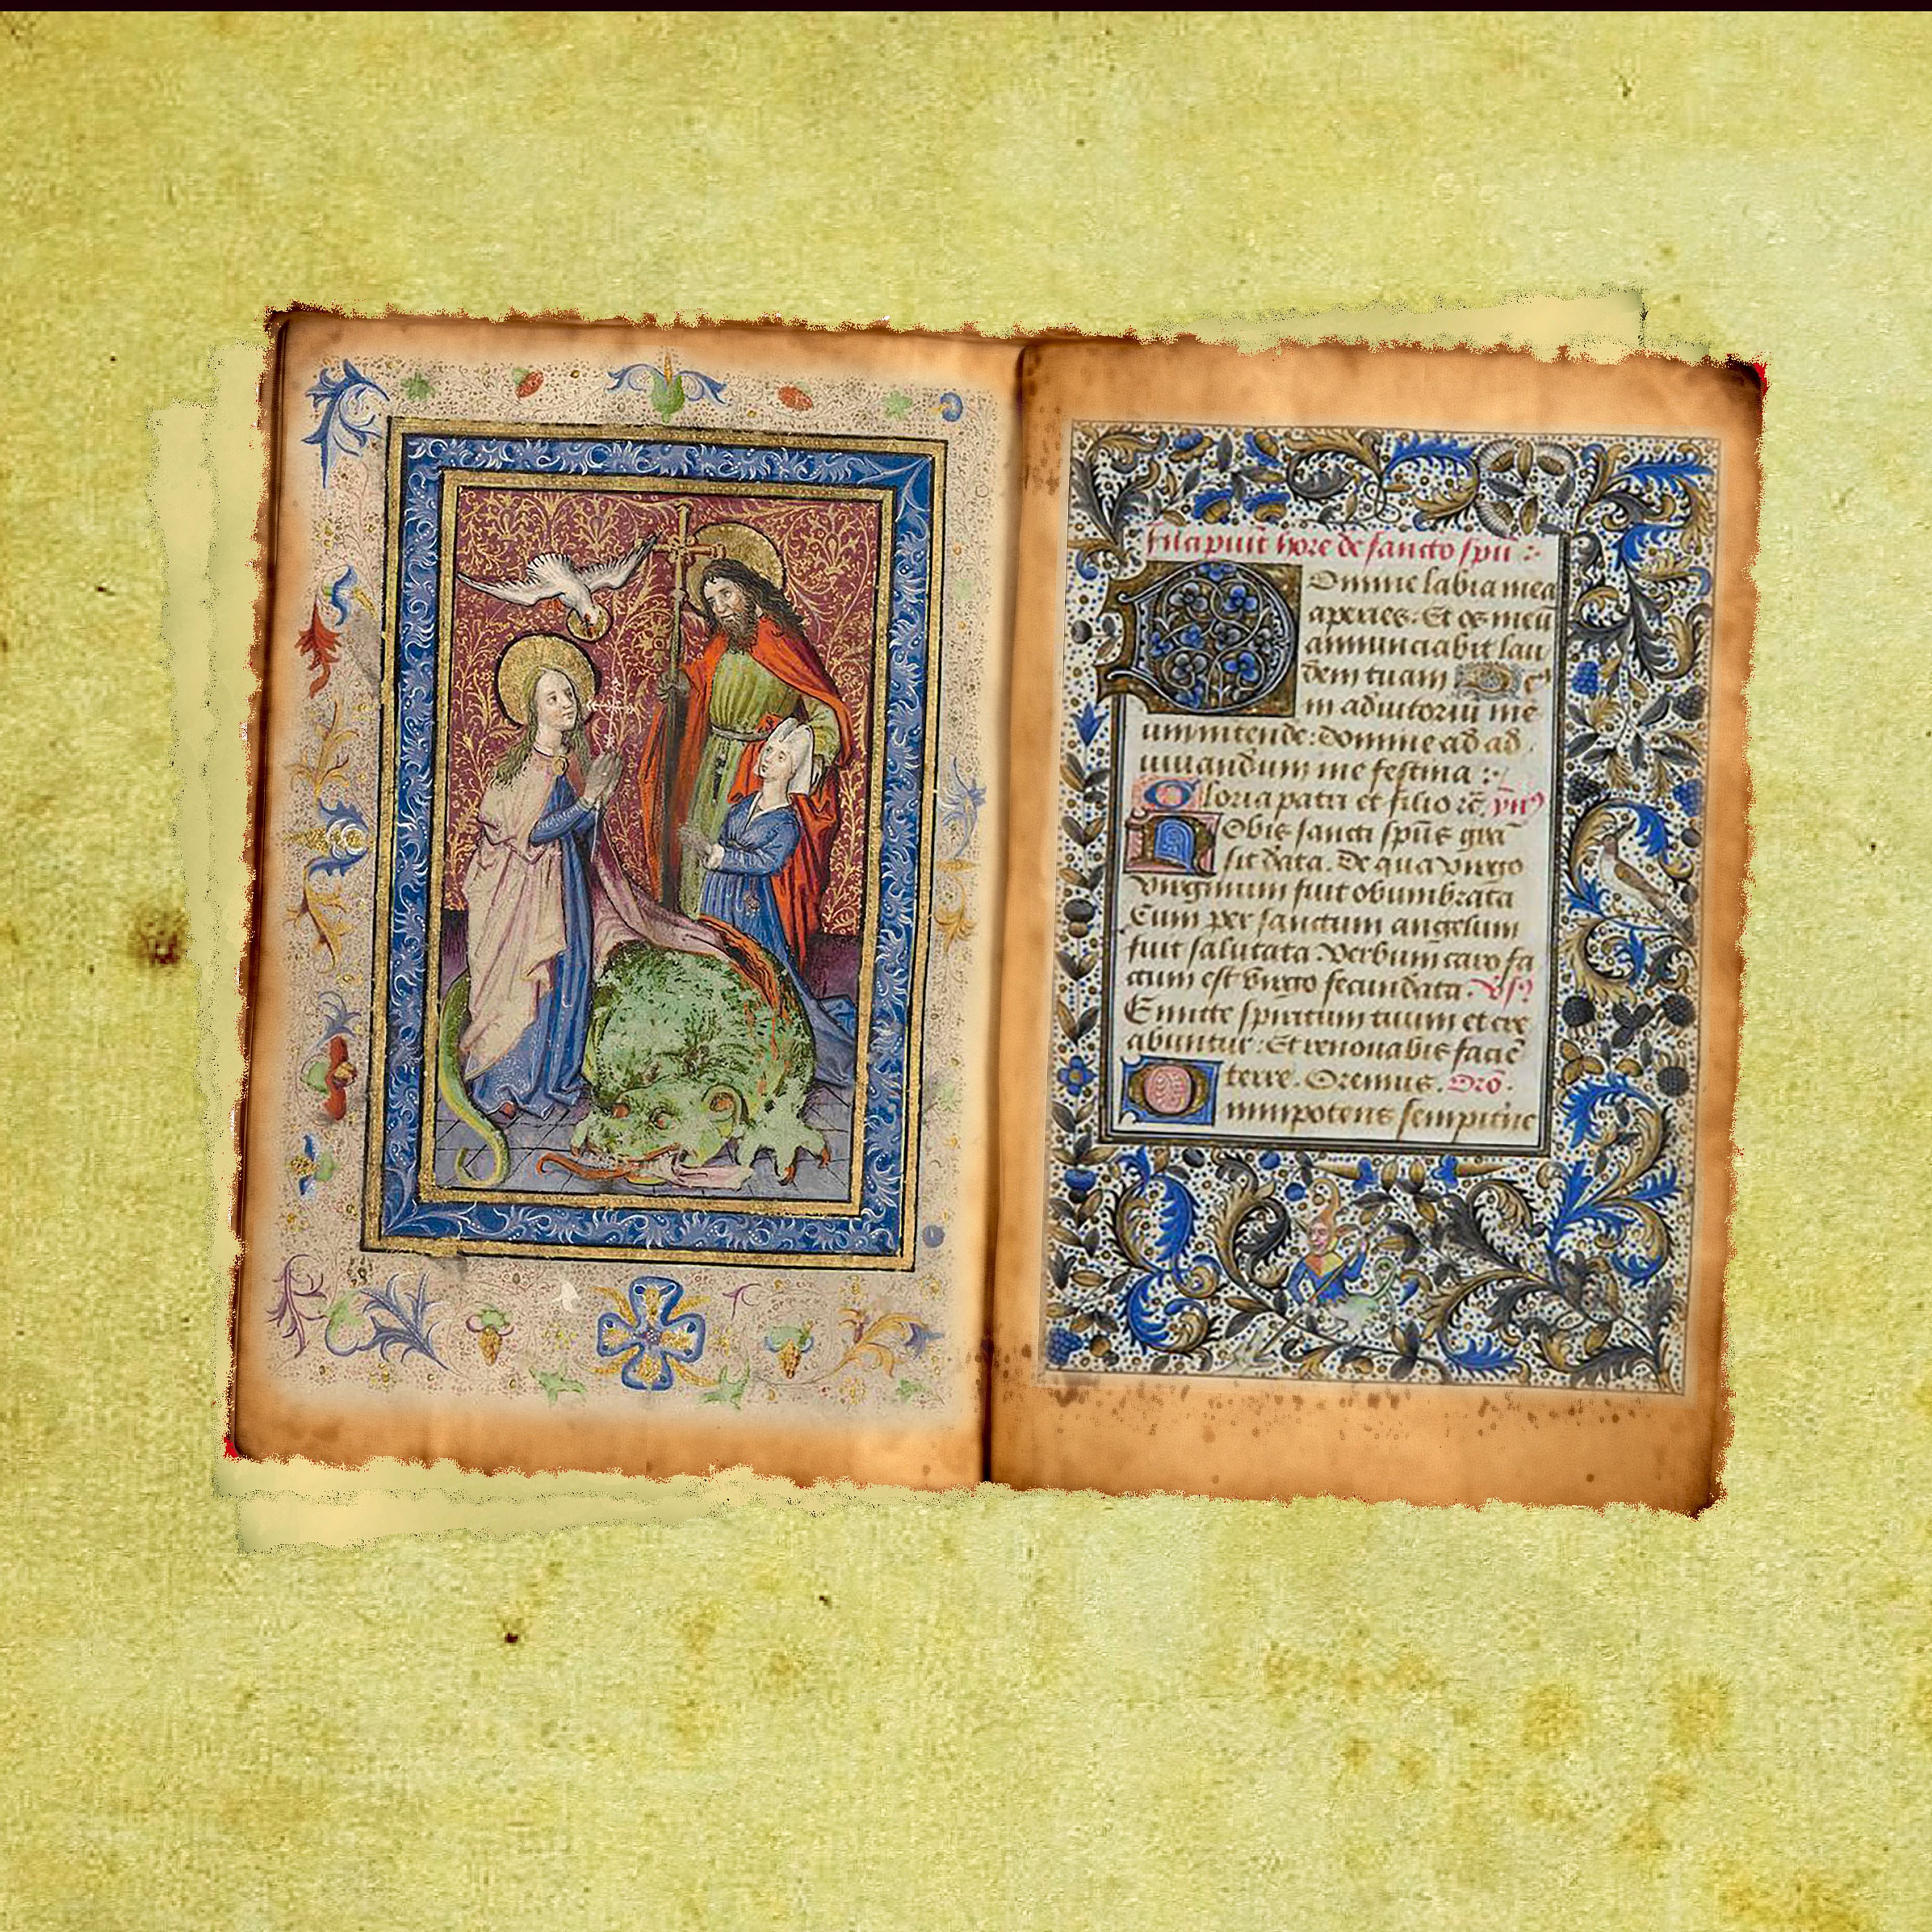 Incipiut hore de sancto spū :~
Domine labia mea
aperies. Et os meū
annunciabit lau
dem tuam De⁹
in adiutoriū me
um intende: domine ad ad
iuuandum me festina :~
Gloria patri et filio rc̄. ym⁹
Nobis sancti spūs grā
sit data. De qua virgo
virginum fuit obumbrata
Cum per sanctum angelum
fuit salutata. Verbum caro fa
ctum est virgo fecundata. vs⁹
Emitte spiritum tuum et cre
abuntur: Et renouabis faciē
terre. Oremus. Orō.
Omnipotens sempitne